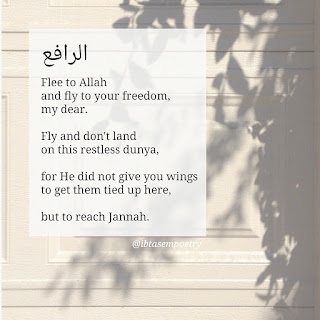 الرافع
Flee to Allah
and fly to your freedom,
my dear.
Fly and don't land
on this restless dunya,
for He did not give you wings
to get them tied up here,
but to reach Jannah.
@ibtasempoetry